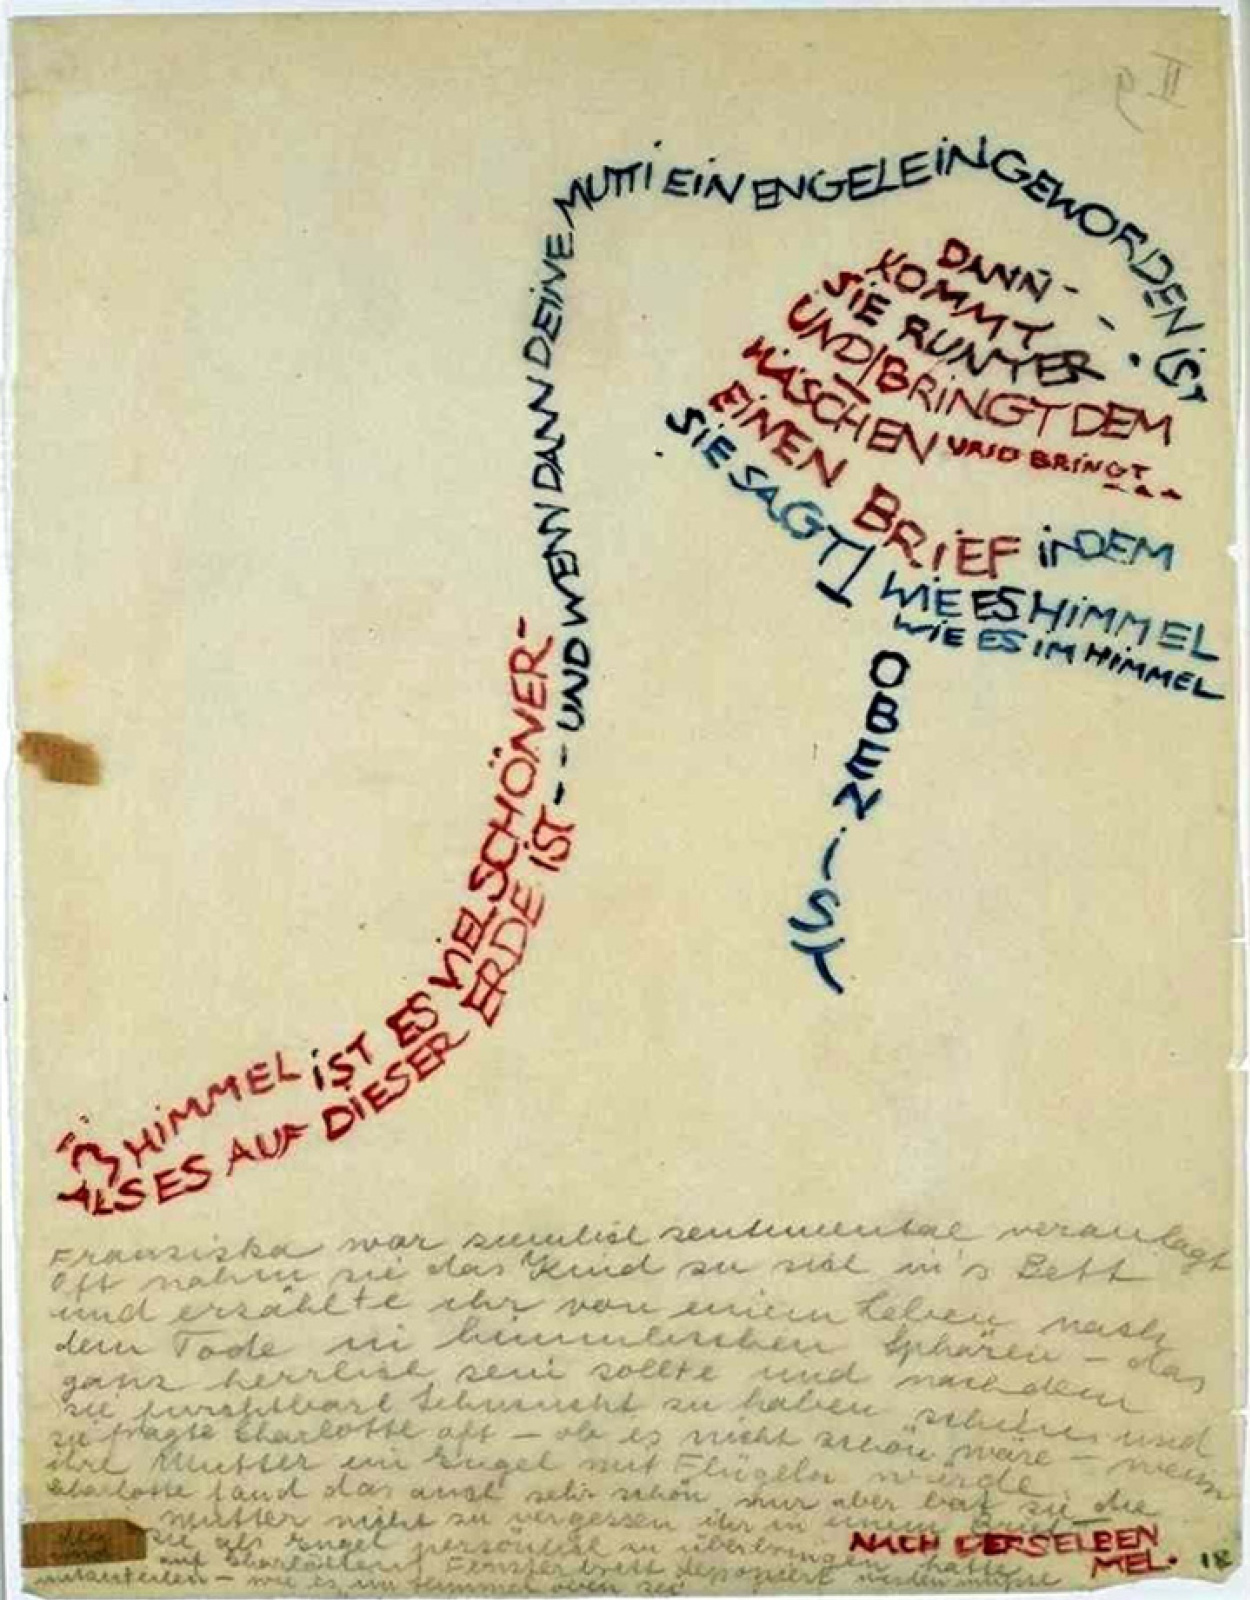 II 9
IM HIMMEL IST ES VIEL SCHÖNER-
ALS ES AUF DIESER ERDE IST - - UND WENN DANN DEINE MUTTI EIN ENGELEIN GEWORDEN IST
DANN - - .
KOMMT
SIE RUNTER
UND BRINGT DEM
HÄSCHEN UND BRINGT---
EINEN BRIEF INDEM
SIE SAGT WIE ES HIMMEL
WIE ES IM HIMMEL
OBEN IST
Franziska war sentimental veranlagt
Oft nahm sie das Kind zu sich in's Bett
und erzählte ihr von einem Leben nach
dem Tode in himmlischen Sphären - das
ganz herrlich sein sollte und nachdem
sie furchtbare Sehnsucht zu haben schien und
sie fragte Charlotte oft - ob es nicht schön wäre - wenn
ihre Mutter ein Engel mit Flügeln würde.
Charlotte fand das auch sehr schön nur aber bat sie die
Mutter nicht zu vergessen ihr in einem Brief
sie als Engel persönlich zu überbringen hatte
auf Charlottens Fensterbrett deponiert werden müsste
mitzuteilen - wie es im Himmel oben sei
NACH DERSELBEN
MEL. 18